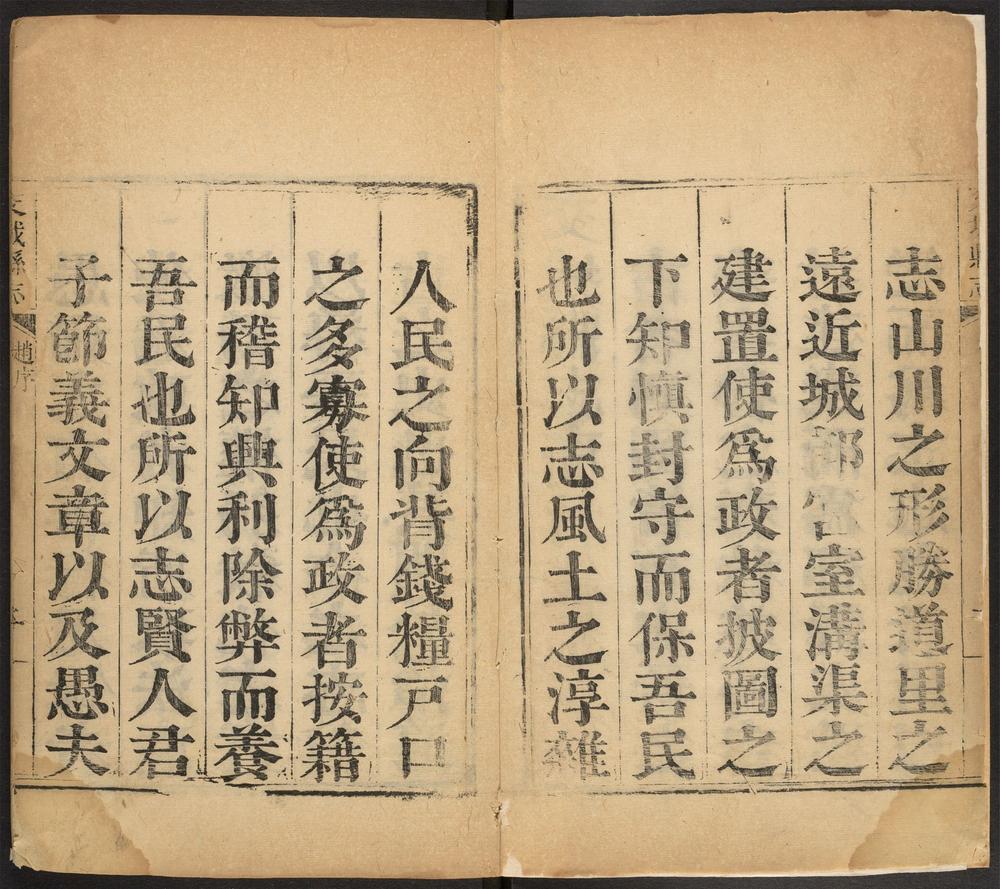 志山川之形勝道里之
遠近城郭宮室溝渠之
建置使爲政者披圖之
下知慎封守而保吾民
也所以志風土之淳雜
人民之向背錢糧戸口
之多寡使爲政者按籍
而稽知興利除弊而養
吾民也所以志賢人君
子節義文章以及愚夫
文城縣志 趙序